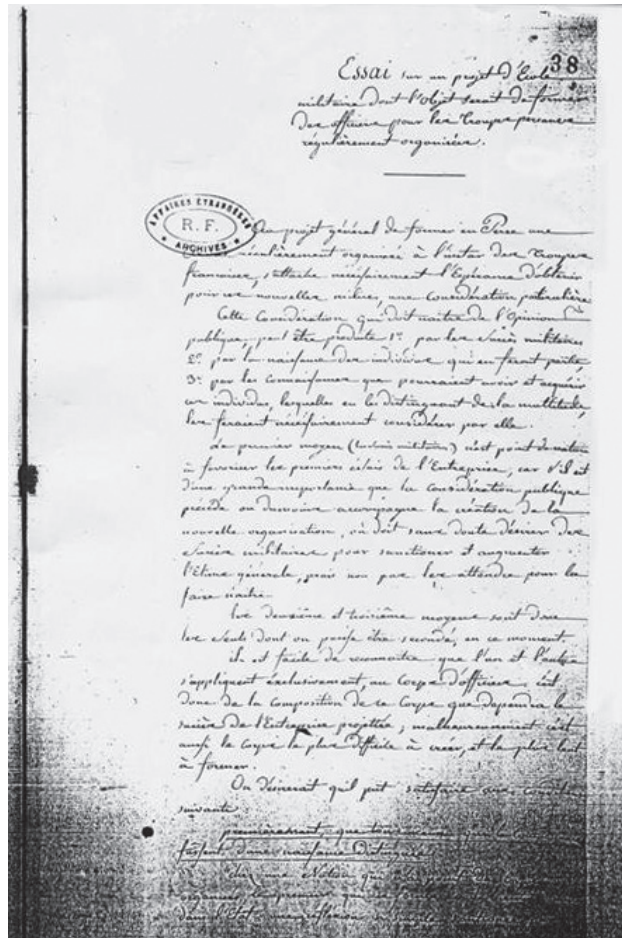 38
Essai sur un projet d'Ecole
militaire dont l'objet serait de former
des officiers pour les Troupes persanes
régulièrement organisées.
AFFAIRES ETRANGÈRES
R. F.
ARCHIVES
Au projet général de former en Perse une
régulièrement organisée à l'instar des Troupes
françaises, s'attache nécessairement l'Espérance d'obtenir
pour ces nouvelles milices, une considération particulière
Cette Considération qui doit naitre de l'Opinion
publique, peut être produite 1º par les succès militaires
2º par la naissance des individus qui en feront partie,
3º par les connaissances que pourraient avoir et acquérir
ces individus, lesquelles en les distinguant de la multitude,
les feraient nécessairement considérer par elle.
Le premier moyen (les succès militaires) n'est point de nature
à favoriser les premiers essais de l'Entreprise, car s'il est
d'une grande importance que la considération publique
précède ou du moins accompagne la création de la
nouvelle organisation, on doit sans doute désirer des
succès militaires pour sanctioner et augmenter
l'Estime générale, mais non pas les attendre pour la
faire naitre.
les deuxième et troisième moyens sont donc
les seuls dont on puisse être secondé, en ce moment.
il est facile de reconnaitre que l'un et l'autre
s'appliquent exclusivement, au Corps d'officiers, c'est
donc de la composition de ce Corps que dépendra le
succès de l'Entreprise projettée; malheureusement c'est
aussi le corps le plus difficile à créer, et le plus lent
à former.
On désirerait qu'il put satisfaire aux
suivantes
premièrement, que
d'une naissance distinguée
chez une Nation qui
organiser, le premier
dans l'Etat